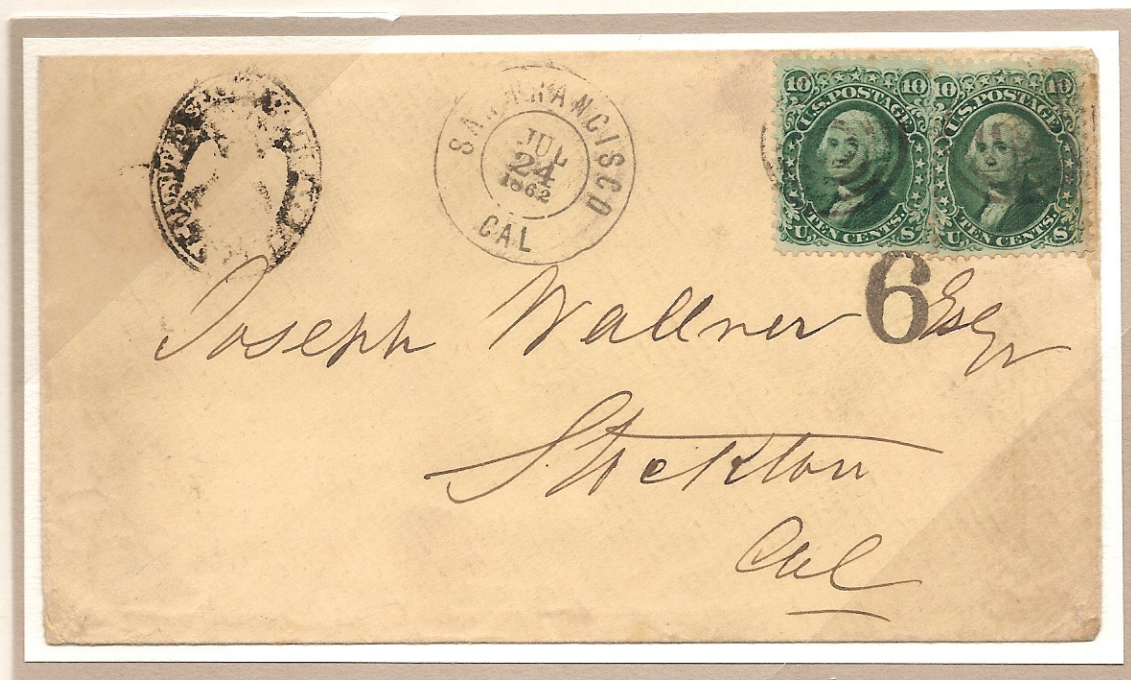 SAN FRANCISCO
JUL
24
1862
CAL
10 10
U.S. POSTAGE
TEN CENTS.
U S
10 10
U.S. POSTAGE
TEN CENTS.
U S
6
Joseph Wallner Esqr
Stockton
Cal